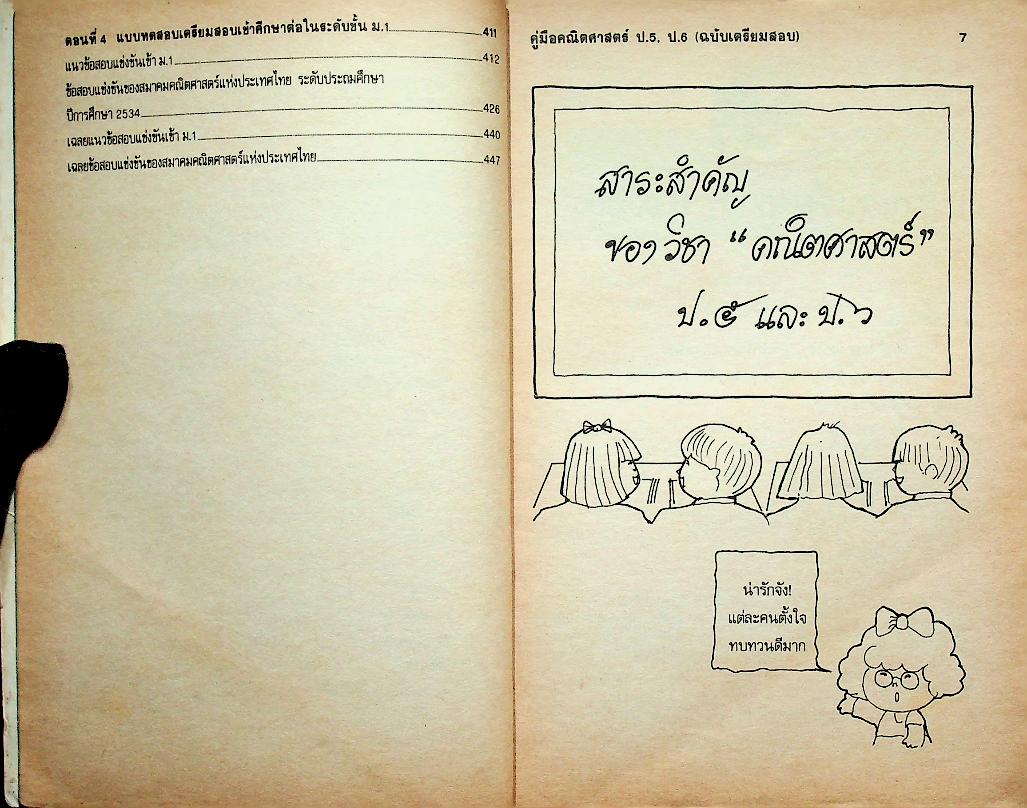 ตอนที่ 4 แบบทดสอบเตรียมสอบเข้าศึกษาต่อในระดับชั้น ม.1 411
แนวข้อสอบแข่งขันเข้า ม.1 412
ข้อสอบแข่งขันของสมาคมคณิตศาสตร์แห่งประเทศไทย ระดับประถมศึกษา
ปีการศึกษา 2534 426
เฉลยแนวข้อสอบแข่งขันเข้า ม.1 440
เฉลยข้อสอบแข่งขันของสมาคมคณิตศาสตร์แห่งประเทศไทย 447
คู่มือคณิตศาสตร์ ป.5, ป.6 (ฉบับเตรียมสอบ) 7
สาระสำคัญ
ของวิชา “คณิตศาสตร์”
ป.๕ และ ป.๖
น่ารักจัง!
แต่ละคนตั้งใจ
ทบทวนดีมาก